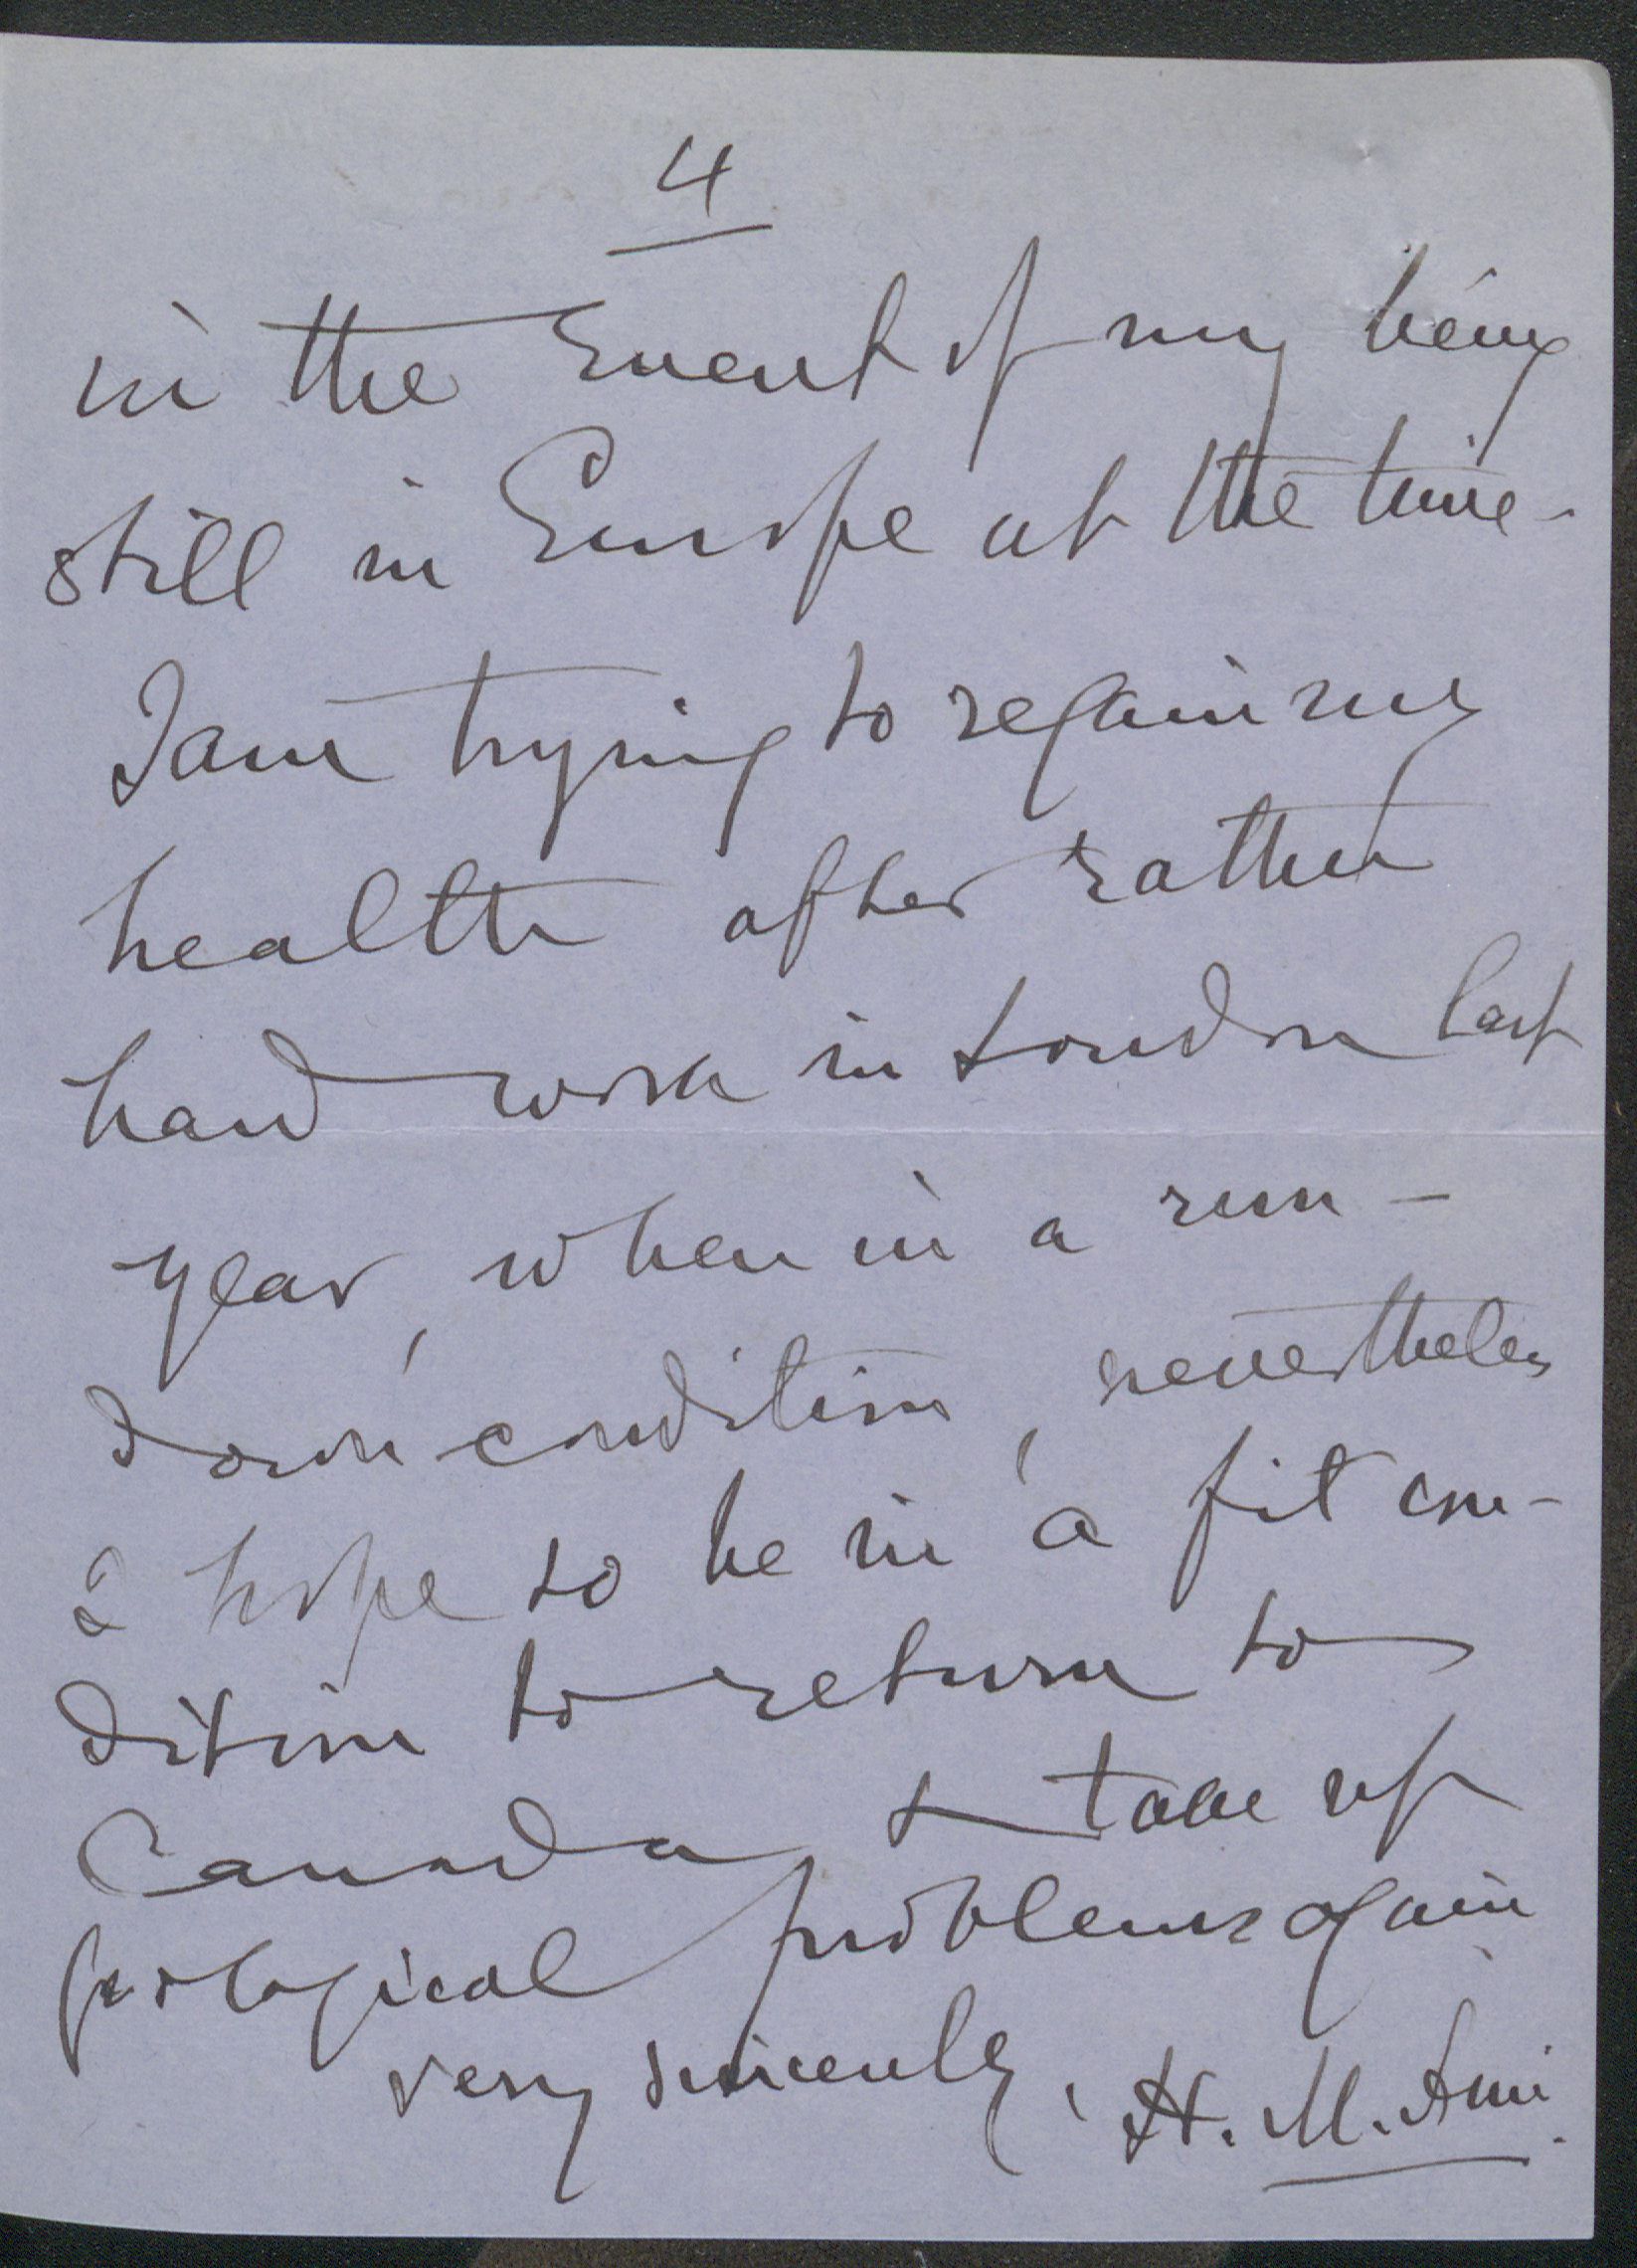 4
in the Event of my being
still in Europe at the time -
I am trying to regain my
health after rather
hard work in London last
year, when in a run -
down condition, nevertheless
I hope to be in a fit con-
dition to return to
Canada & take up
geological problems again
very sincerely, H. M. Ami.